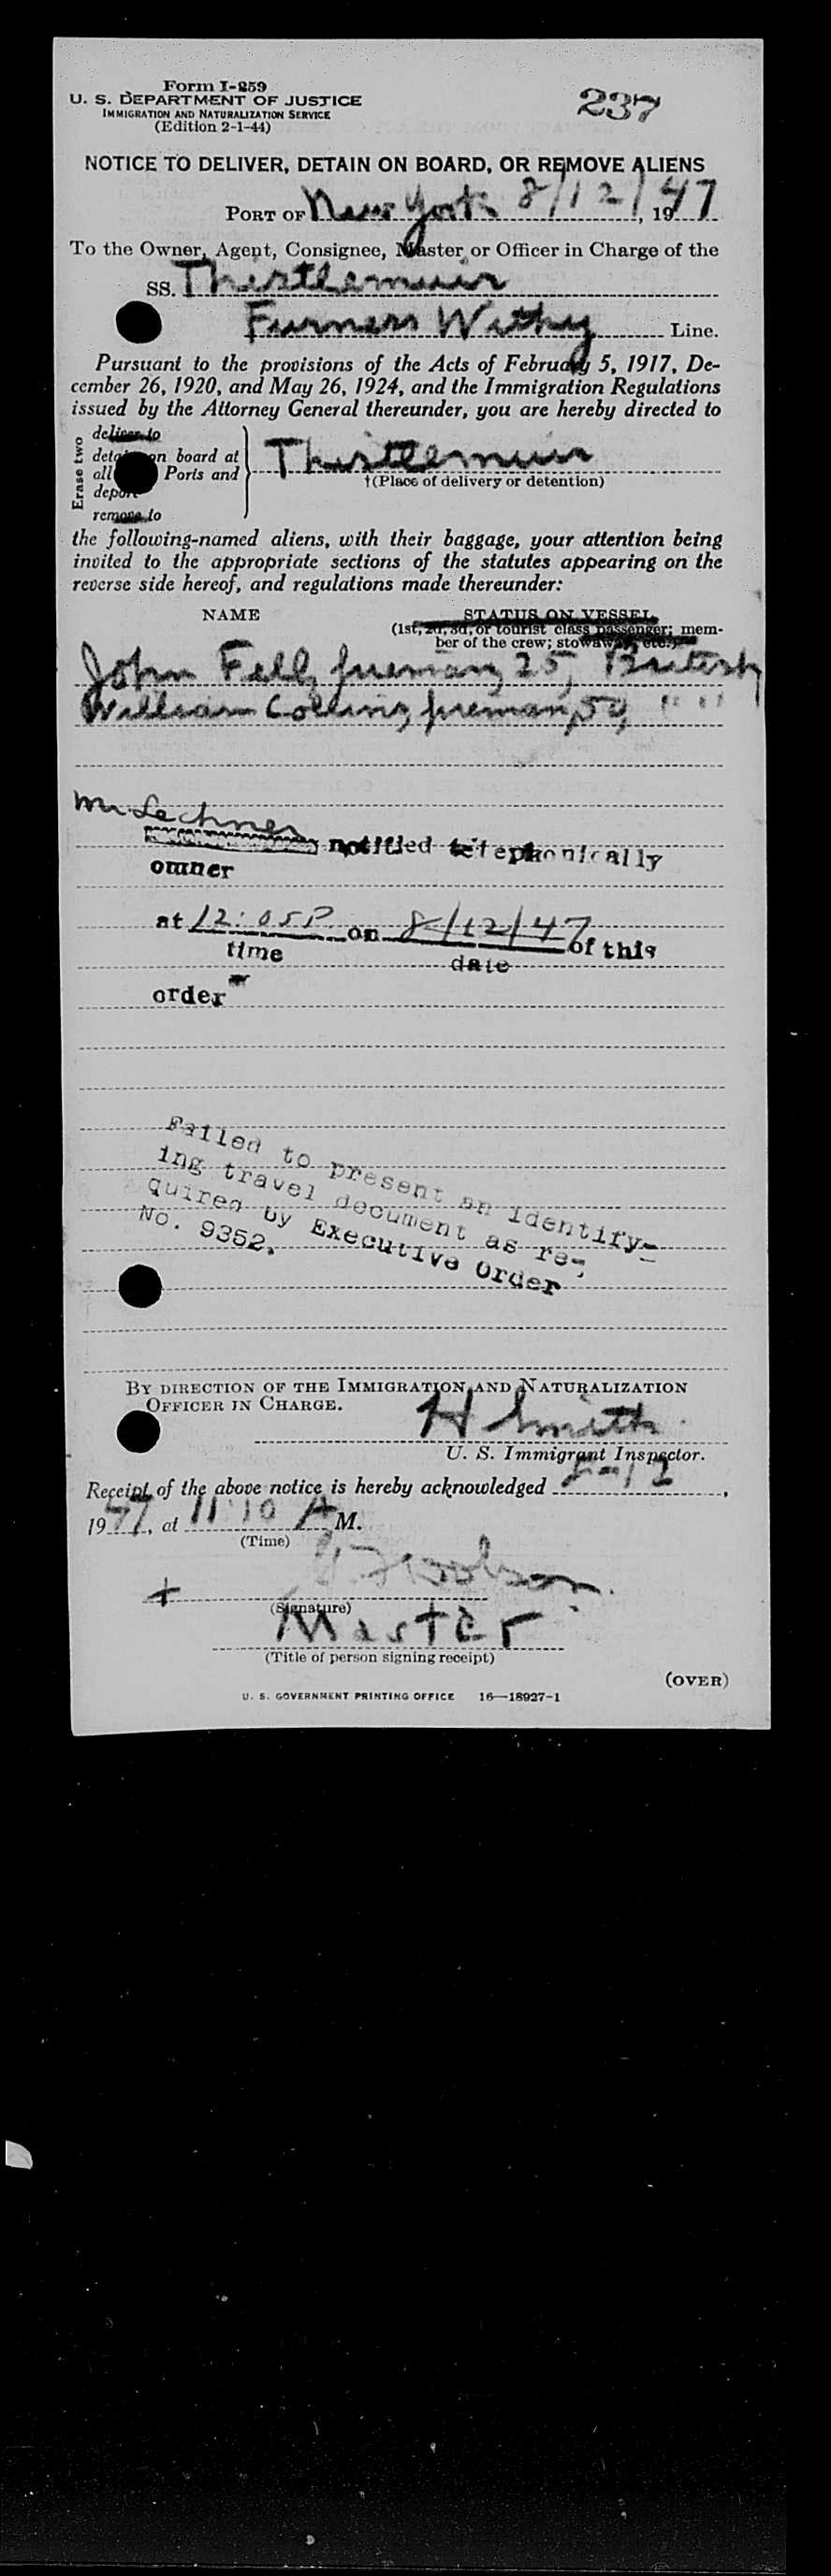 Form I-259
U. S. DEPARTMENT OF JUSTICE
IMMIGRATION AND NATURALIZATION SERVICE
(Edition 2-1-44)
237
NOTICE TO DELIVER, DETAIN ON BOARD, OR REMOVE ALIENS
PORT OF New York 8/12/, 1947
To the Owner, Agent, Consignee, Master or Officer in Charge of the
SS. Thistlemuir
Furness Withy Line.
Pursuant to the provisions of the Acts of February 5, 1917, De-
cember 26, 1920, and May 26, 1924, and the Immigration Regulations
issued by the Attorney General thereunder, you are hereby directed to
Erase two
deliver to
detain on board at
all Ports and
deport
remove to
Thistlemuir
†(Place of delivery or detention)
the following-named aliens, with their baggage, your attention being
invited to the appropriate sections of the statutes appearing on the
reverse side hereof, and regulations made thereunder:
NAME
STATUS ON VESSEL
(1st, 2d, 3d, or tourist class passenger; mem-
ber of the crew; stowaway, etc.)
John Fell, fireman, 25, British
William Collins, fireman, 54, " "
Mr. Lechner
notified telephonically
owner
at 12:05P. on 8/12/47 of this
time date
order
Failed to present an identify-
ing travel document as re-
quired by Executive Order
No. 9352.
BY DIRECTION OF THE IMMIGRATION AND NATURALIZATION
OFFICER IN CHARGE.
H Smith
U. S. Immigrant Inspector.
Receipt of the above notice is hereby acknowledged 8-12,
1947, at 11:10 A M.
(Time)
+
(Signature)
Master
(Title of person signing receipt)
(OVER)
U. S. GOVERNMENT PRINTING OFFICE 16—18927-1